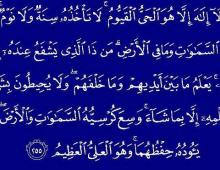 لَآ إِلَٰهَ إِلَّا هُوَ ٱلْحَىُّ ٱلْقَيُّومُ ۚ لَا تَأْخُذُهُۥ سِنَةٌ وَلَا نَوْمٌ
ٱلسَّمَٰوَٰتِ وَمَا فِى ٱلْأَرْضِ ۗ مَن ذَا ٱلَّذِى يَشْفَعُ عِندَهُۥٓ
يَعْلَمُ مَا بَيْنَ أَيْدِيهِمْ وَمَا خَلْفَهُمْ ۖ وَلَا يُحِيطُونَ
إِلَّا بِمَا شَآءَ ۚ وَسِعَ كُرْسِيُّهُ ٱلسَّمَٰوَٰتِ وَٱلْأَرْضَ
يَـُٔودُهُۥ حِفْظُهُمَا ۚ وَهُوَ ٱلْعَلِىُّ ٱلْعَظِيمُ ٢٥٥